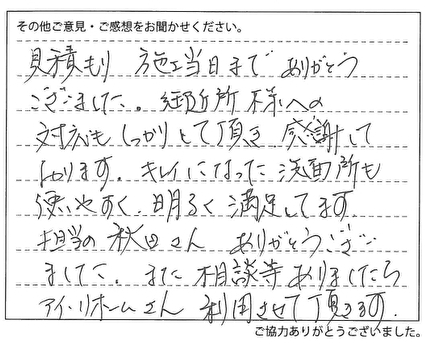 その他ご意見・ご感想をお聞かせください。
見積もり 施工当日まで ありがとう
ございました。ご近所様への
対応も しっかりして頂き 感謝して
おります。キレイになった洗面所も
使いやすく、明るく 満足してます。
担当の 秋田さん ありがとうござい
ました。また 相談等ありましたら
アイ・リホームさん 利用させて頂きます。
ご協力ありがとうございました。